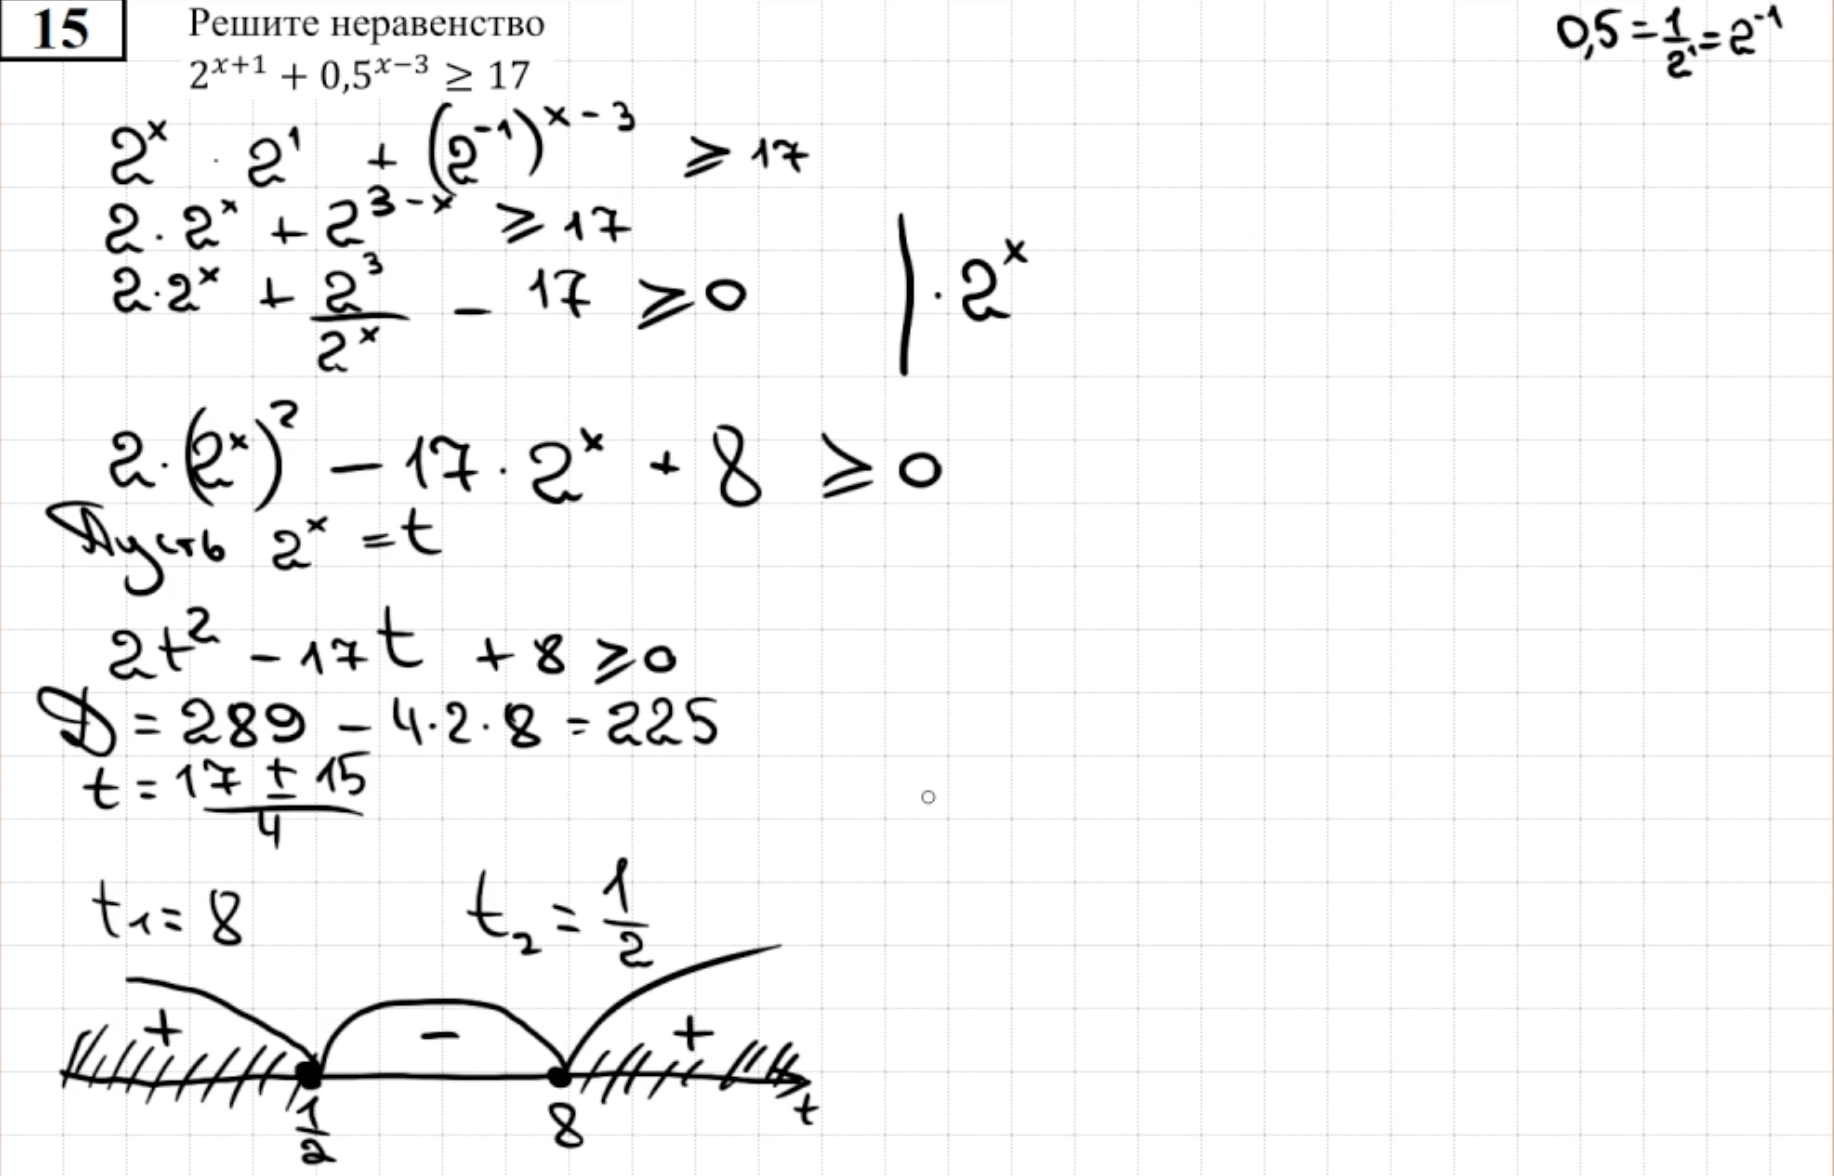 15 Решите неравенство
2^{x+1} + 0,5^{x-3} ≥ 17
0,5 = \frac{1}{2^1} = 2^{-1}
2^x · 2^1 + (2^{-1})^{x-3} ≥ 17
2 · 2^x + 2^{3-x} ≥ 17
2 · 2^x + \frac{2^3}{2^x} - 17 ≥ 0 | · 2^x
2 · (2^x)^2 - 17 · 2^x + 8 ≥ 0
Пусть 2^x = t
2t^2 - 17t + 8 ≥ 0
D = 289 - 4·2·8 = 225
t = \frac{17 ± 15}{4}
t_1 = 8 t_2 = \frac{1}{2}
+ - +
\frac{1}{2} 8 t